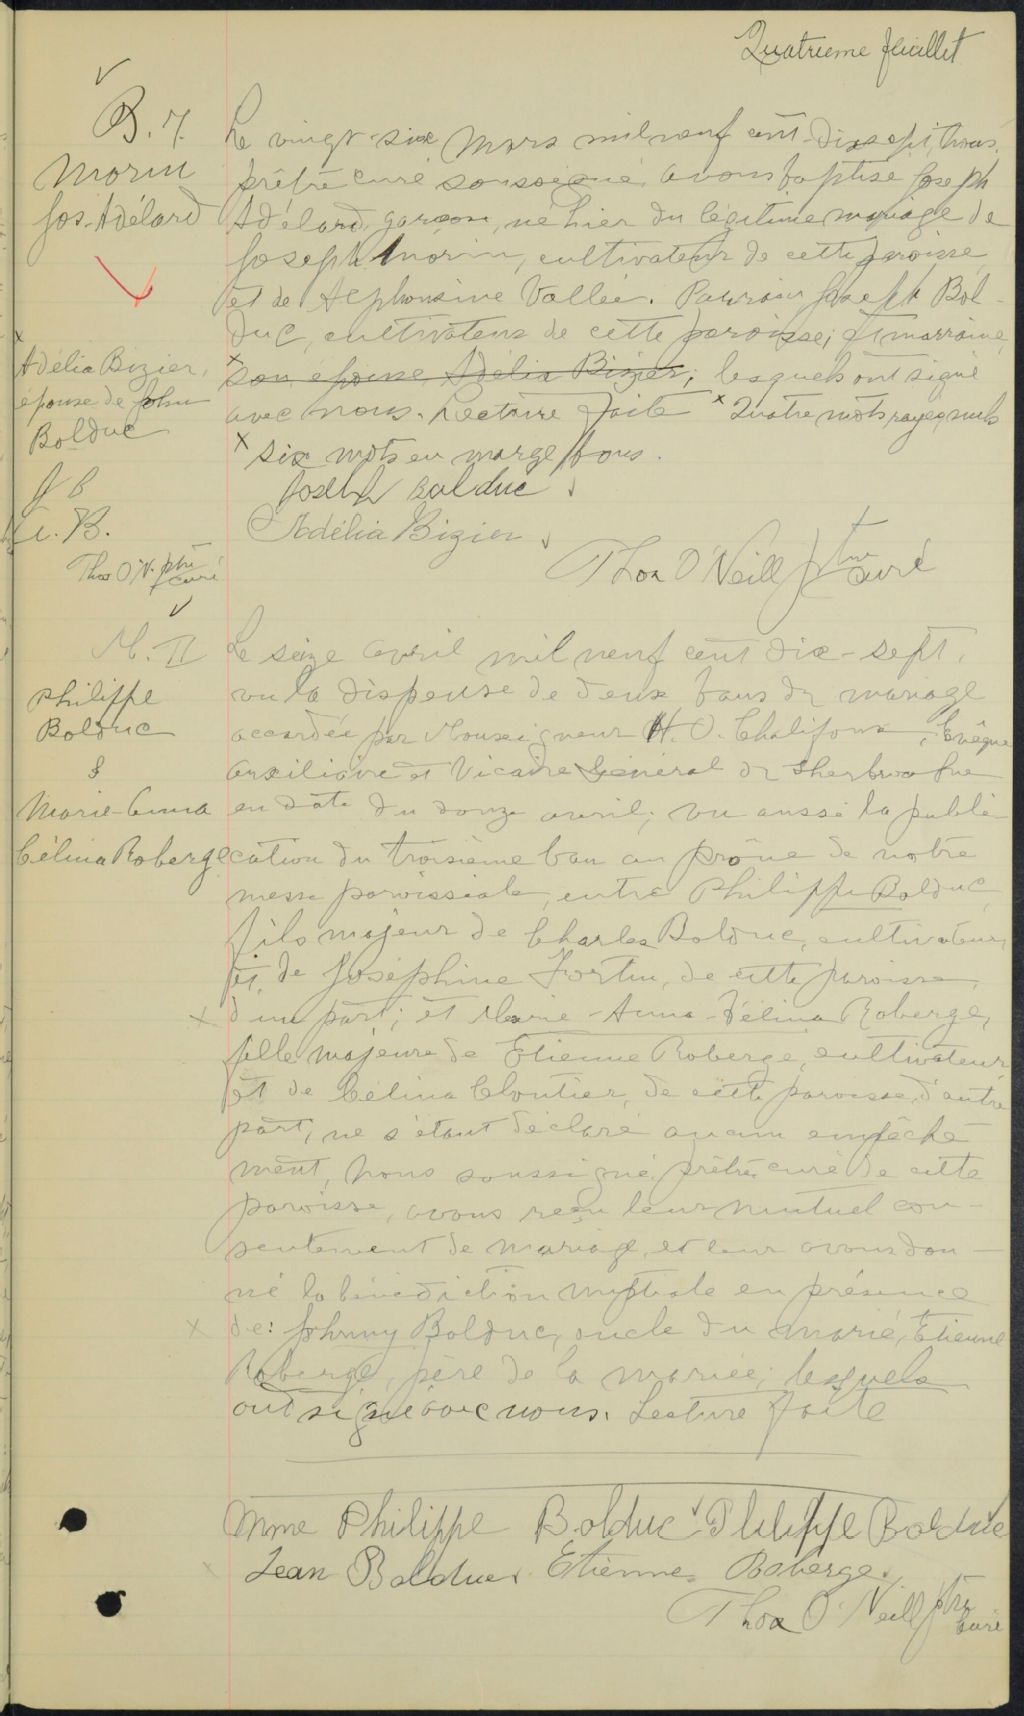 Quatrieme feuillet
B. 7.
Morin
Jos-Adélard
Le vingt-six Mars mil neuf cent dix sept, nous,
prêtre curé soussigné, avons baptisé Joseph
Adélard, garçon, né hier du légitime mariage de
Joseph Morin, cultivateur de cette paroisse
et de Alphonsine Vallée. Parrain Joseph Bol-
duc, cultivateur de cette paroisse; et marraine,
x son épouse Adélia Bizier; lesquels ont signé
avec nous. Lecture faite x Quatre mots rayés nuls
x six mots en marge bons.
x
Adélia Bizier,
épouse de John
Bolduc
J B
A. B.
Thos O'N. ptre
curé
Joseph Bolduc
Adélia Bizier
Thos O'Neill ptre
curé
M. II
Philippe
Bolduc
&
Marie-Anna
Célina Roberge
Le seize avril mil neuf cent dix-sept,
vu la dispense de deux bans de mariage
accordée par Monseigneur H. O. Chalifoux, Evêque
auxiliaire et Vicaire Général de Sherbrooke
en date du douze avril; vu aussi la publi-
cation du troisième ban au prône de notre
messe paroissiale, entre Philippe Bolduc,
fils majeur de Charles Bolduc, cultivateur,
et de Joséphine Fortin, de cette paroisse,
x d'une part; et Marie-Anna-Célina Roberge,
fille majeure de Etienne Roberge, cultivateur,
et de Célina Cloutier, de cette paroisse, d'autre
part, ne s'étant déclaré aucun empêche
ment, Nous soussigné, prêtre curé de cette
paroisse, avons reçu leur mutuel con-
sentement de mariage et leur avons don-
né la bénédiction nuptiale en présence
x de: Johnny Bolduc, oncle du marié, Etienne
Roberge, père de la mariée; lesquels
ont signé avec nous. Lecture faite
Mme Philippe Bolduc Philippe Bolduc
x Jean Bolduc. Etienne Roberge.
Thos O'Neill ptre
curé